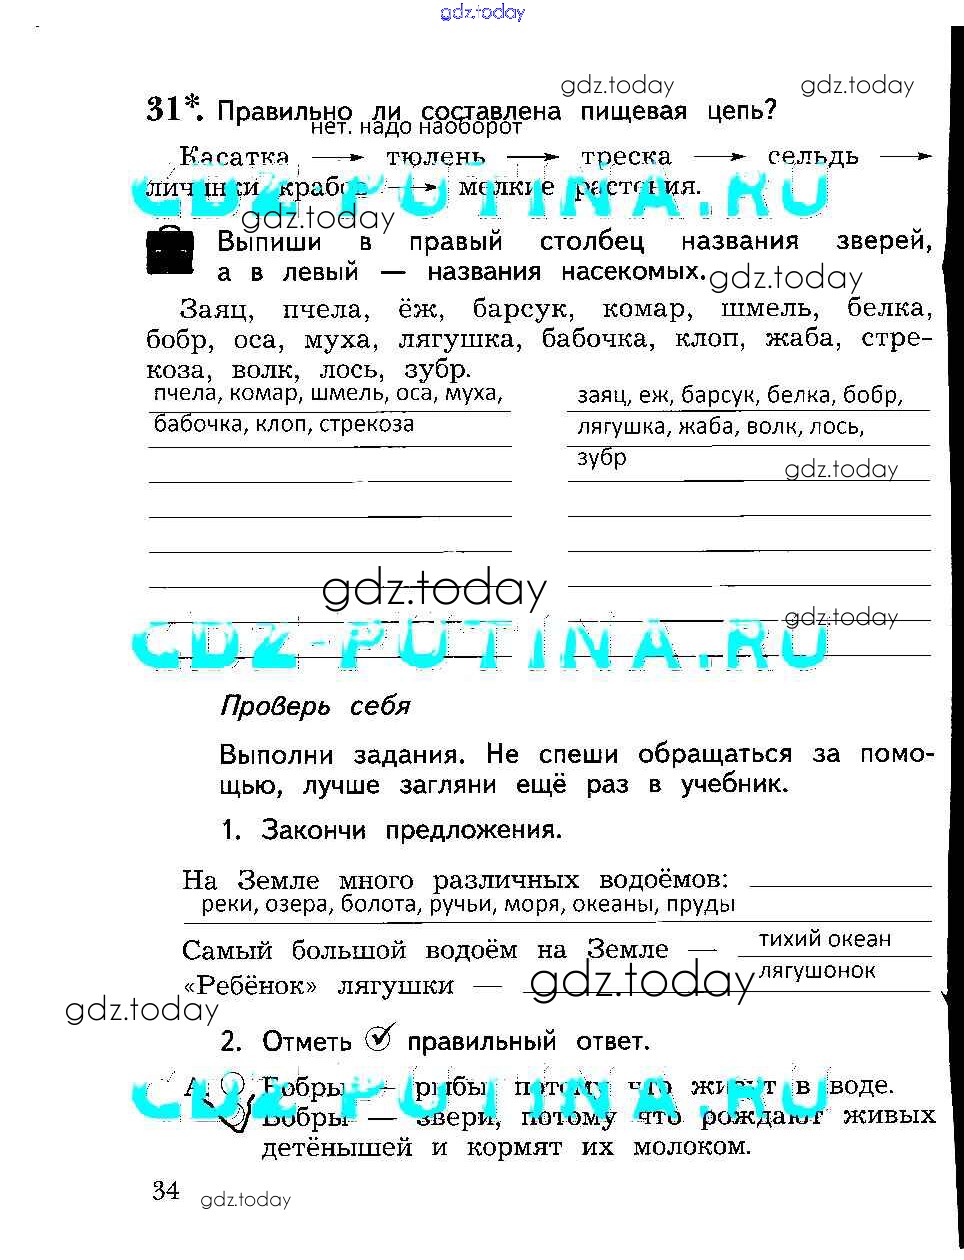 gdz.today
gdz.today
gdz.today
31*. Правильно ли составлена пищевая цепь?
нет. надо наоборот
Касатка → тюлень → треска → сельдь →
личинки крабов → мелкие растения.
GDZ-PUTINA.RU
gdz.today
Выпиши в правый столбец названия зверей,
а в левый — названия насекомых.
gdz.today
Заяц, пчела, ёж, барсук, комар, шмель, белка,
бобр, оса, муха, лягушка, бабочка, клоп, жаба, стре-
коза, волк, лось, зубр.
пчела, комар, шмель, оса, муха,
бабочка, клоп, стрекоза
заяц, еж, барсук, белка, бобр,
лягушка, жаба, волк, лось,
зубр
gdz.today
gdz.today
gdz.today
GDZ-PUTINA.RU
Проверь себя
Выполни задания. Не спеши обращаться за помо-
щью, лучше загляни ещё раз в учебник.
1. Закончи предложения.
На Земле много различных водоёмов:
реки, озера, болота, ручьи, моря, океаны, пруды
Самый большой водоём на Земле — тихий океан
«Ребёнок» лягушки — лягушонок
gdz.today
gdz.today
2. Отметь правильный ответ.
А. Бобры — рыбы, потому что живут в воде.
GDZ-PUTINA.RU
Бобры — звери, потому что рождают живых
детёнышей и кормят их молоком.
34
gdz.today